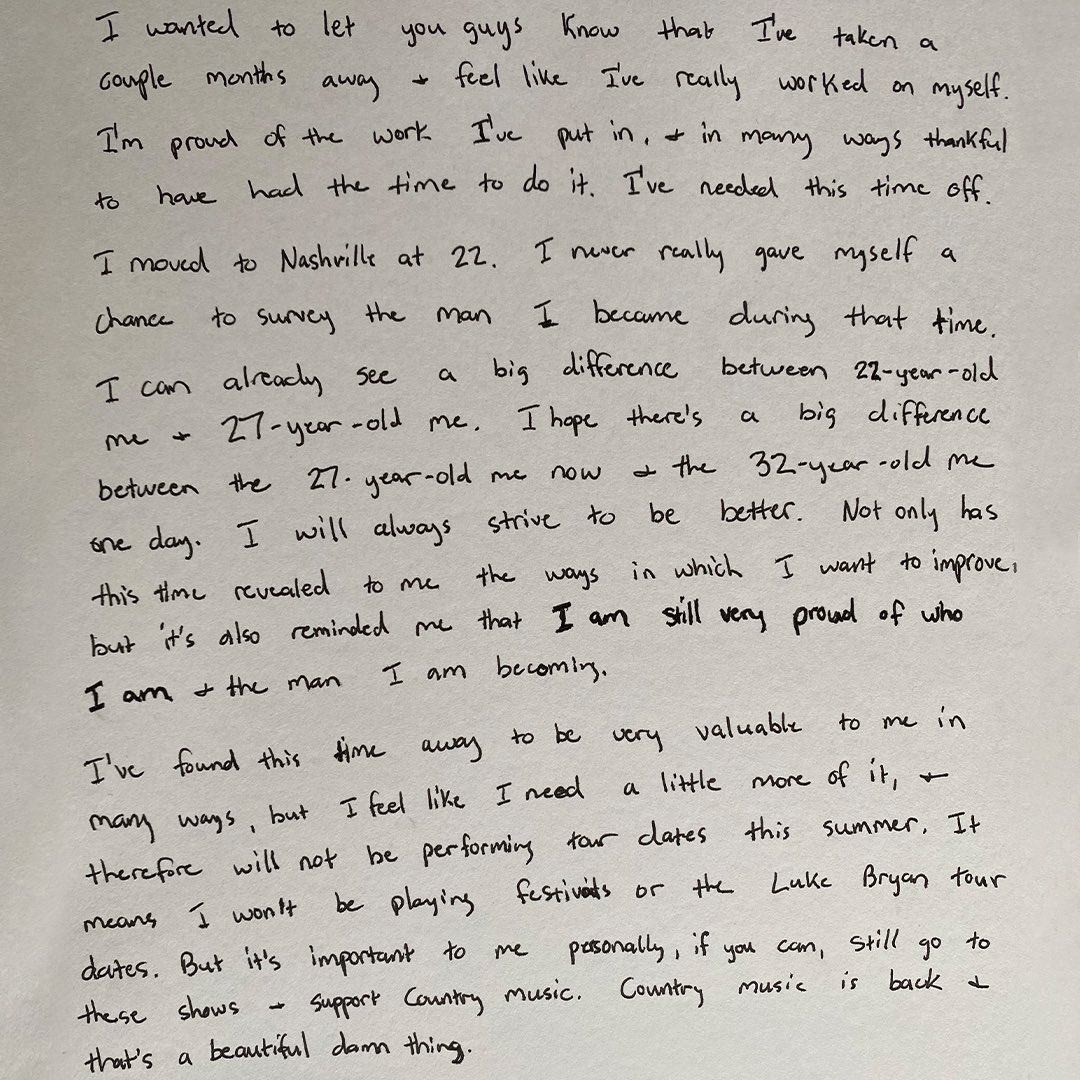 I wanted to let you guys know that I've taken a
couple months away + feel like I've really worked on myself.
I'm proud of the work I've put in, + in many ways thankful
to have had the time to do it. I've needed this time off.
I moved to Nashville at 22. I never really gave myself a
chance to survey the man I became during that time.
I can already see a big difference between 22-year-old
me + 27-year-old me. I hope there's a big difference
between the 27-year-old me now + the 32-year-old me
one day. I will always strive to be better. Not only has
this time revealed to me the ways in which I want to improve,
but it's also reminded me that I am still very proud of who
I am + the man I am becoming.
I've found this time away to be very valuable to me in
many ways, but I feel like I need a little more of it, +
therefore will not be performing tour dates this summer. It
means I won't be playing festivals or the Luke Bryan tour
dates. But it's important to me personally, if you can, still go to
these shows + support Country music. Country music is back +
that's a beautiful damn thing.